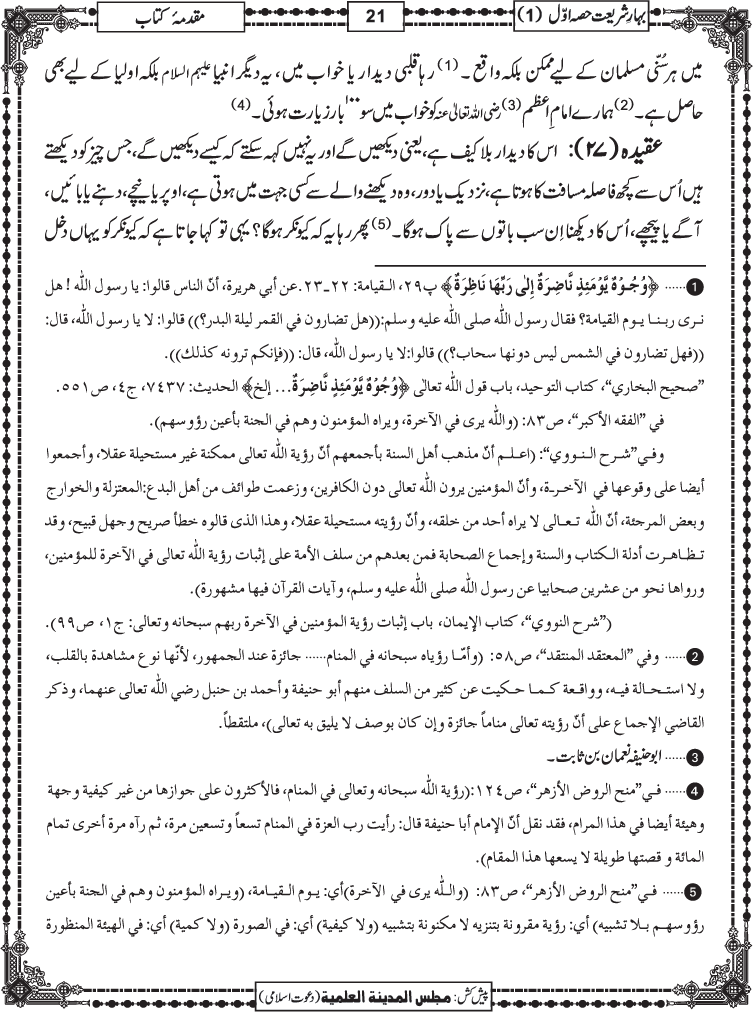 بہارِ شریعت حصہ اوّل (1)
21
مقدمۂ کتاب
میں ہر سُنّی مسلمان کے لیے ممکن بلکہ واقع ۔(1) رہا قلبی دیدار یا خواب میں، یہ دیگر انبیا علیہم السلام بلکہ اولیا کے لیے بھی
حاصل ہے۔(2) ہمارے امامِ اعظم (3) رضی اللہ تعالیٰ عنہ کو خواب میں سو۱۰۰ بار زیارت ہوئی۔(4)
عقیدہ (۲۷): اس کا دیدار بلا کیف ہے، یعنی دیکھیں گے اور یہ نہیں کہہ سکتے کہ کیسے دیکھیں گے، جس چیز کو دیکھتے
ہیں اُس سے کچھ فاصلہ مسافت کا ہوتا ہے، نزدیک یا دور، وہ دیکھنے والے سے کسی جہت میں ہوتی ہے، اوپر یا نیچے، دہنے یا بائیں،
آگے یا پیچھے، اُس کا دیکھنا اِن سب باتوں سے پاک ہوگا۔(5) پھر رہا یہ کہ کیونکر ہوگا؟ یہی تو کہا جاتا ہے کہ کیونکر کو یہاں دخل
1 ...... ﴿وُجُوْهٌ یَّوْمَىٕذٍ نَّاضِرَةٌ اِلٰى رَبِّهَا نَاظِرَةٌ﴾ پ٢٩، القيامة: ٢٢ـ٢٣. عن أبي هريرة، أنّ الناس قالوا: يا رسول الله ! هل
نرى ربنا يوم القيامة؟ فقال رسول الله صلى الله عليه وسلم:((هل تضارون في القمر ليلة البدر؟)) قالوا: لا يا رسول الله، قال:
((فهل تضارون في الشمس ليس دونها سحاب؟)) قالوا:لا يا رسول الله، قال: ((فإنكم ترونه كذلك)).
”صحيح البخاري“، كتاب التوحيد، باب قول الله تعالى ﴿وُجُوْهٌ یَّوْمَىٕذٍ نَّاضِرَةٌ... إلخ﴾ الحديث: ٧٤٣٧، ج٤، ص٥٥١.
في ”الفقه الأكبر“، ص٨٣: (والله يرى في الآخرة، ويراه المؤمنون وهم في الجنة بأعين رؤوسهم).
وفي”شرح النووي“: (اعلم أنّ مذهب أهل السنة بأجمعهم أنّ رؤية الله تعالى ممكنة غير مستحيلة عقلا، وأجمعوا
أيضا على وقوعها في الآخرة، وأنّ المؤمنين يرون الله تعالى دون الكافرين، وزعمت طوائف من أهل البدع:المعتزلة والخوارج
وبعض المرجئة، أنّ الله تعالى لا يراه أحد من خلقه، وأنّ رؤيته مستحيلة عقلا، وهذا الذى قالوه خطأ صريح وجهل قبيح، وقد
تظاهرت أدلة الكتاب والسنة وإجماع الصحابة فمن بعدهم من سلف الأمة على إثبات رؤية الله تعالى في الآخرة للمؤمنين،
ورواها نحو من عشرين صحابيا عن رسول الله صلى الله عليه وسلم، وآيات القرآن فيها مشهورة).
(”شرح النووي“، كتاب الإيمان، باب إثبات رؤية المؤمنين في الآخرة ربهم سبحانه وتعالى: ج١، ص٩٩).
2 ...... وفي ”المعتقد المنتقد“، ص٥٨: (وأمّا رؤياه سبحانه في المنام...... جائزة عند الجمهور، لأنّها نوع مشاهدة بالقلب،
ولا استحالة فيه، وواقعة كما حكيت عن كثير من السلف منهم أبو حنيفة وأحمد بن حنبل رضي الله تعالى عنهما، وذكر
القاضي الإجماع على أنّ رؤيته تعالى مناماً جائزة وإن كان بوصف لا يليق به تعالى)، ملتقطاً.
3 ...... ابوحنیفہ نعمان بن ثابت ۔
4 ...... في”منح الروض الأزهر“، ص١٢٤:(رؤية الله سبحانه وتعالى في المنام، فالأكثرون على جوازها من غير كيفية وجهة
وهيئة أيضا في هذا المرام، فقد نقل أنّ الإمام أبا حنيفة قال: رأيت رب العزة في المنام تسعاً وتسعين مرة، ثم رآه مرة أخرى تمام
المائة و قصتها طويلة لا يسعها هذا المقام).
5 ...... في”منح الروض الأزهر“، ص٨٣: (والله يرى في الآخرة)أي: يوم القيامة، (ويراه المؤمنون وهم في الجنة بأعين
رؤوسهم بلا تشبيه) أي: رؤية مقرونة بتنزيه لا مكنونة بتشبيه (ولا كيفية) أي: في الصورة (ولا كمية) أي: في الهيئة المنظورة
پیش کش: مجلس المدينة العلمية (دعوت اسلامی)